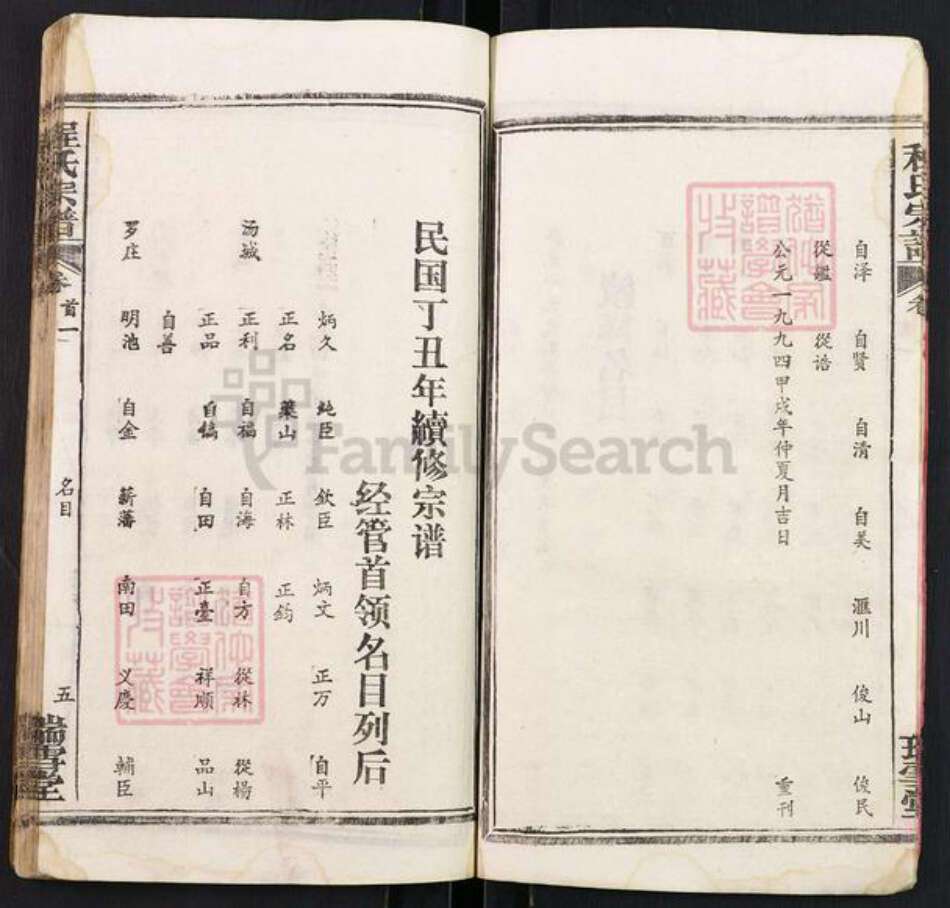 程氏宗譜 卷
自泽 自贤 自清 自美 滙川 俊山 俊民
從鑑 從诰
公元一九九四甲戌年仲夏月吉日 重刊
瑞雪堂
民国丁丑年續修宗谱
经管首领名目列后
炳久 纯臣 钦臣 炳文 正万 自平
正名 蘂山 正林 正鈞
汤城 正利 自福 自海 自方 從林 從楊
正品 自脩 自田 正臺 祥順 品山
自善
罗庄 明池 自金 薪藩 南田 义慶 輔臣
程氏宗譜 卷首一 名目 五 瑞雪堂
譜學會 收藏
譜學會 收藏
FamilySearch